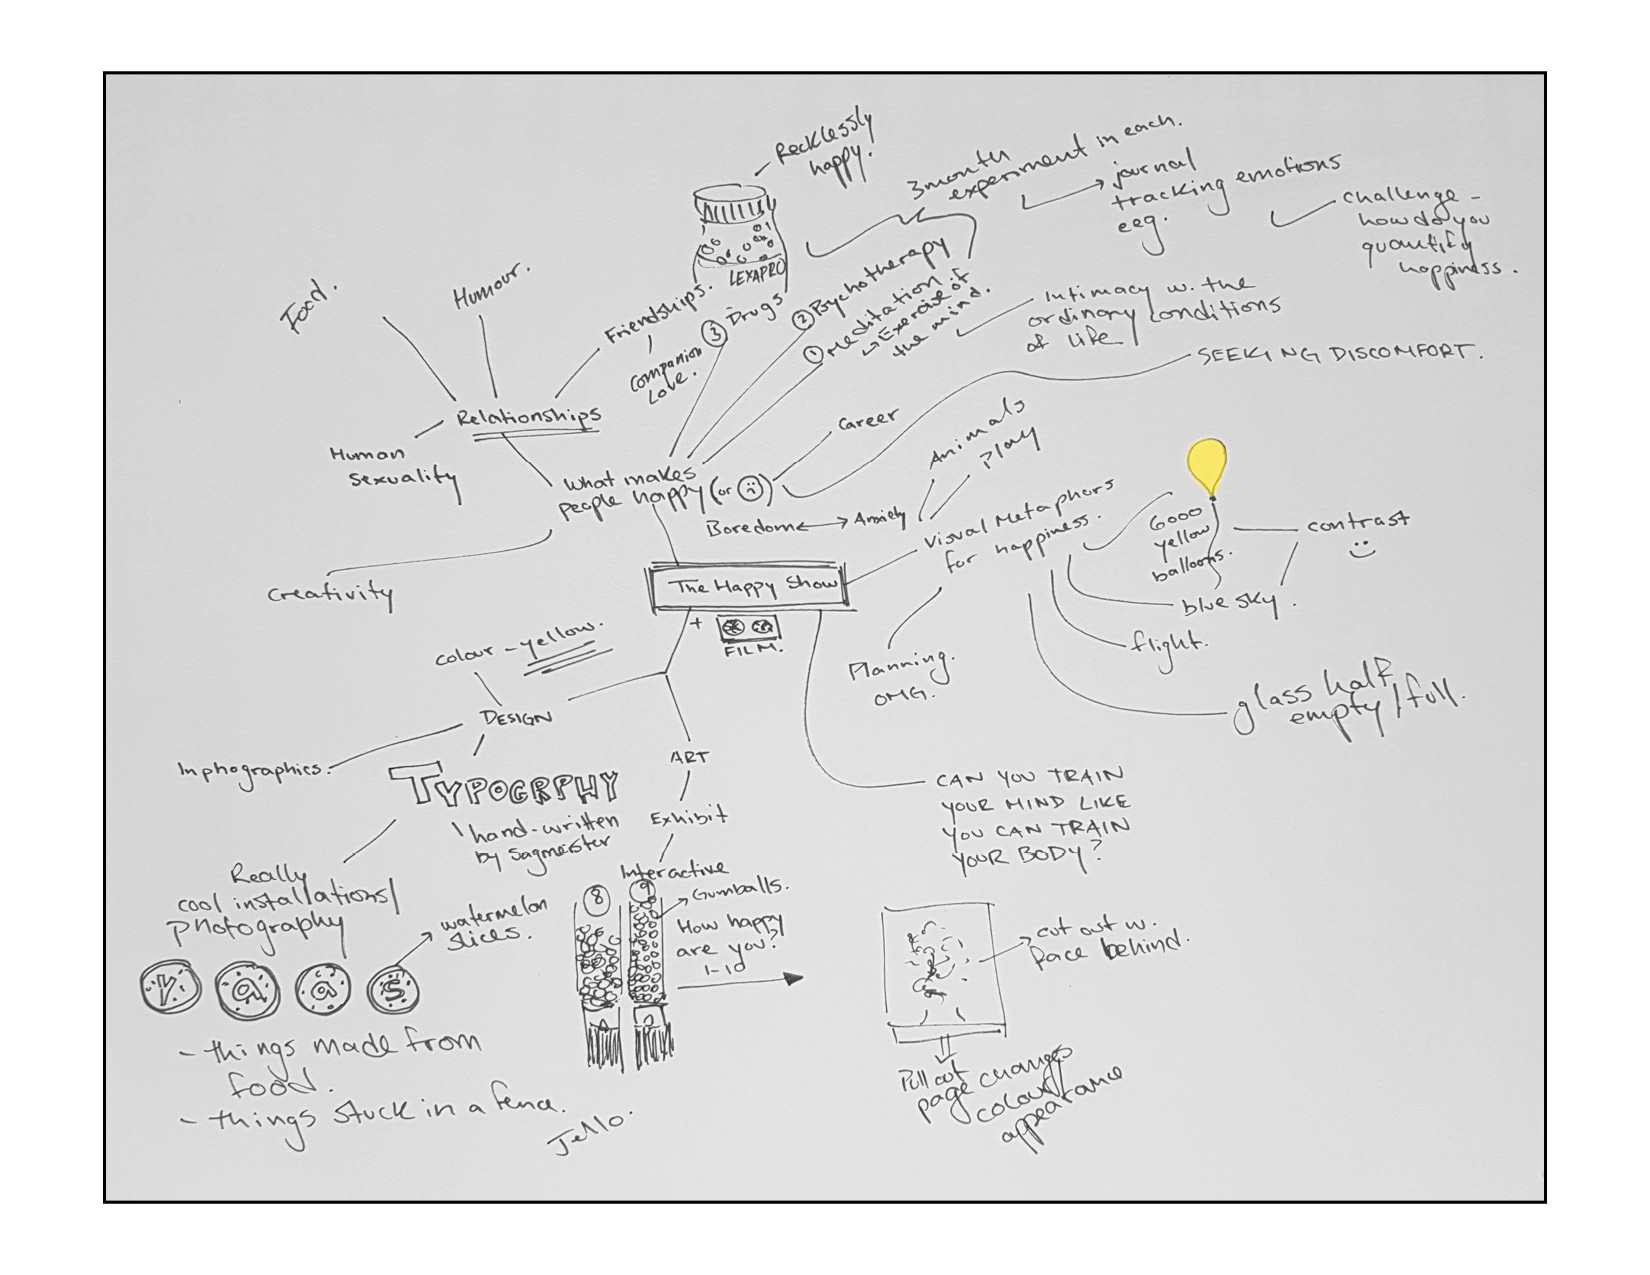 Recklessly
happy.
LEXAPRO
3month
experiment in each.
journal
tracking emotions
eeg.
challenge -
how do you
quantify
happiness.
Food.
Humour.
Friendships.
Companion
Love.
③ Drugs
② Psychotherapy
① Meditation.
↳ Exercise of
the mind.
Intimacy w. the
ordinary conditions
of life
SEEKING DISCOMFORT.
Relationships
Human
sexuality
What makes
people happy (or ☹)
Career
Boredom ↔ Anxiety
Animals
Play
Visual Metaphors
for happiness.
6000
yellow
balloons.
contrast
blue sky.
flight.
glass half
empty/full.
Planning.
OMG.
Creativity
The Happy Show
+
FILM.
colour - yellow.
DESIGN
Inphographics.
TYPOGRPHY
hand-written
by Sagmeister
ART
Exhibit
Interactive
Gumballs.
8
9
How happy
are you?
1-10
CAN YOU TRAIN
YOUR MIND LIKE
YOU CAN TRAIN
YOUR BODY?
Really
cool installations/
photography
watermelon
slices.
Y a a s
- things made from
food.
- things stuck in a fence.
Jello.
cut out w.
Race behind.
Pull out
page changes
colour/
appearance